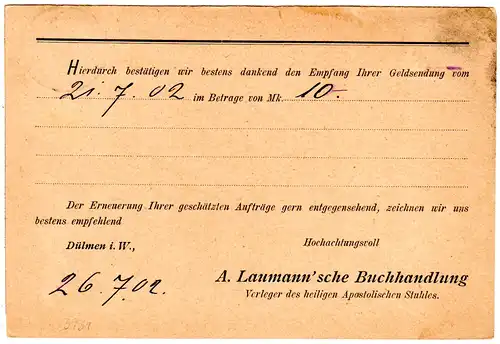 Hierdurch bestätigen wir bestens dankend den Empfang Ihrer Geldsendung vom
21.7.02 im Betrage von Mk. 10.
Der Erneuerung Ihrer geschätzten Aufträge gern entgegensehend, zeichnen wir uns
bestens empfehlend
Dülmen i. W., Hochachtungsvoll
A. Laumann'sche Buchhandlung
26.7.02. Verleger des heiligen Apostolischen Stuhles.